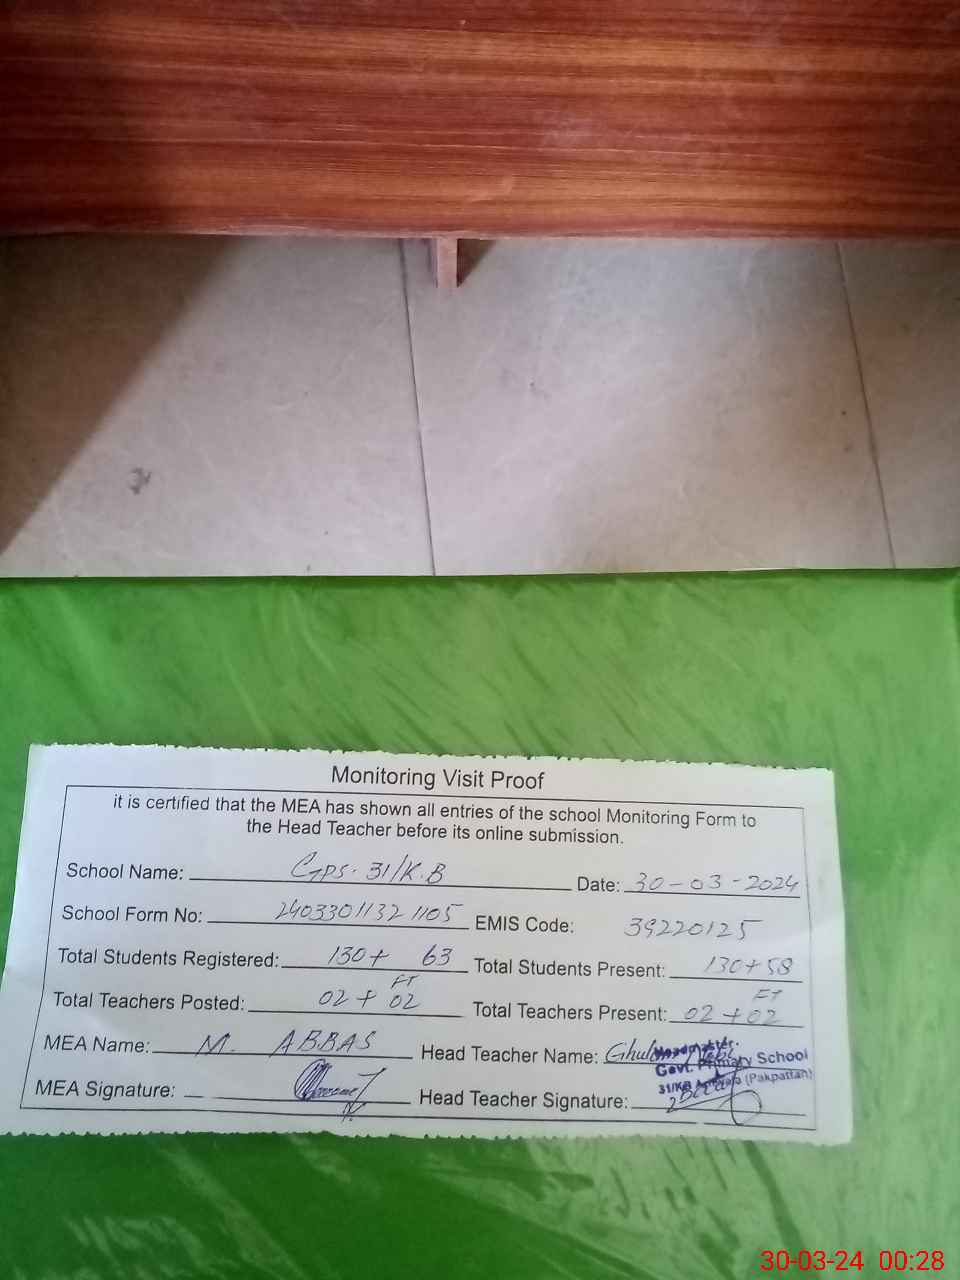 Monitoring Visit Proof
it is certified that the MEA has shown all entries of the school Monitoring Form to
the Head Teacher before its online submission.
School Name: GPS. 31/K.B Date: 30-03-2024
School Form No: 24033011321105 EMIS Code: 39220125
Total Students Registered: 130+ 63 Total Students Present: 130+58
Total Teachers Posted: 02 + 02 FT Total Teachers Present: 02 + 02 FT
MEA Name: M. ABBAS Head Teacher Name: Ghulam
Headmaster
Govt. Primary School
31/KB (Pakpattan)
MEA Signature: Head Teacher Signature:
30-03-24 00:28